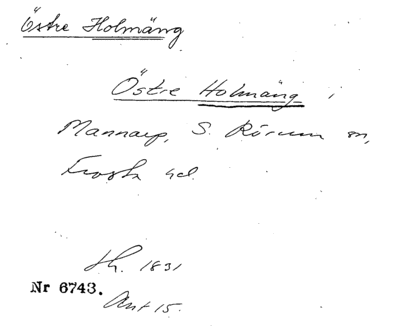 Östre Holmäng
Östre Holmäng i
Mannarp, S. Rörum sn,
Frosta hd.
Sk. 1831
Nr 6743.
Akt 15.